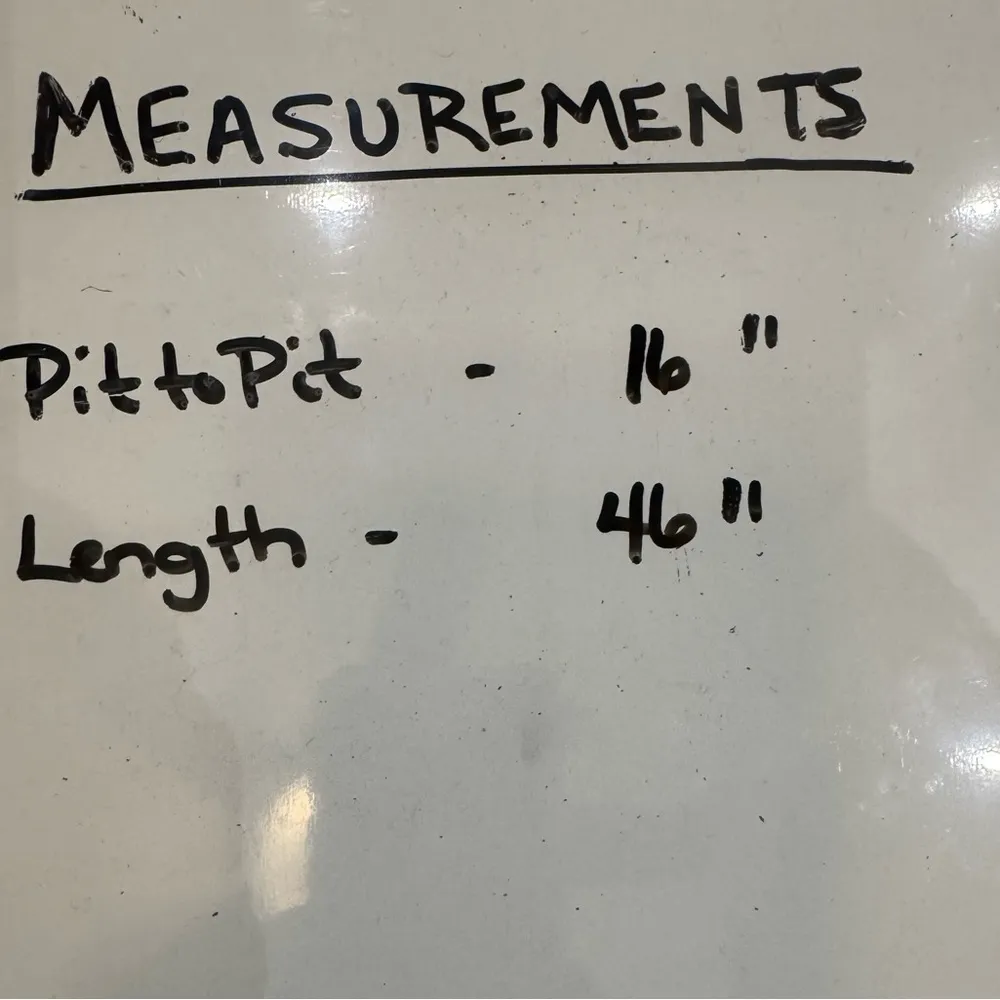 MEASUREMENTS
Pit to Pit - 16"
Length - 46"